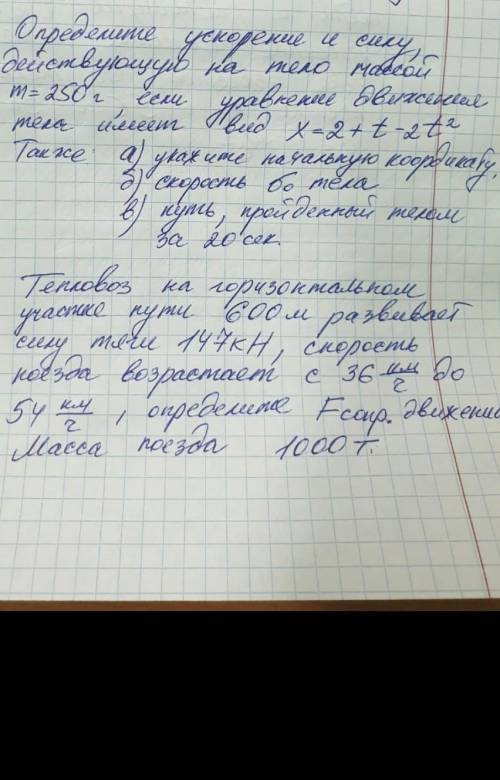 Определите ускорение и силу,
действующую на тело массой
m=250г если уравнение движения
тела имеет вид x=2+t-2t²
Также: а) укажите начальную координату,
б) скорость V₀ тела
в) путь, пройденный телом
за 20 сек.
Тепловоз на горизонтальном
участке пути 600м развивает
силу тяги 147кН, скорость
поезда возрастает с 36 км/ч до
54 км/ч, определите Fсопр. движению
Масса поезда 1000 т.